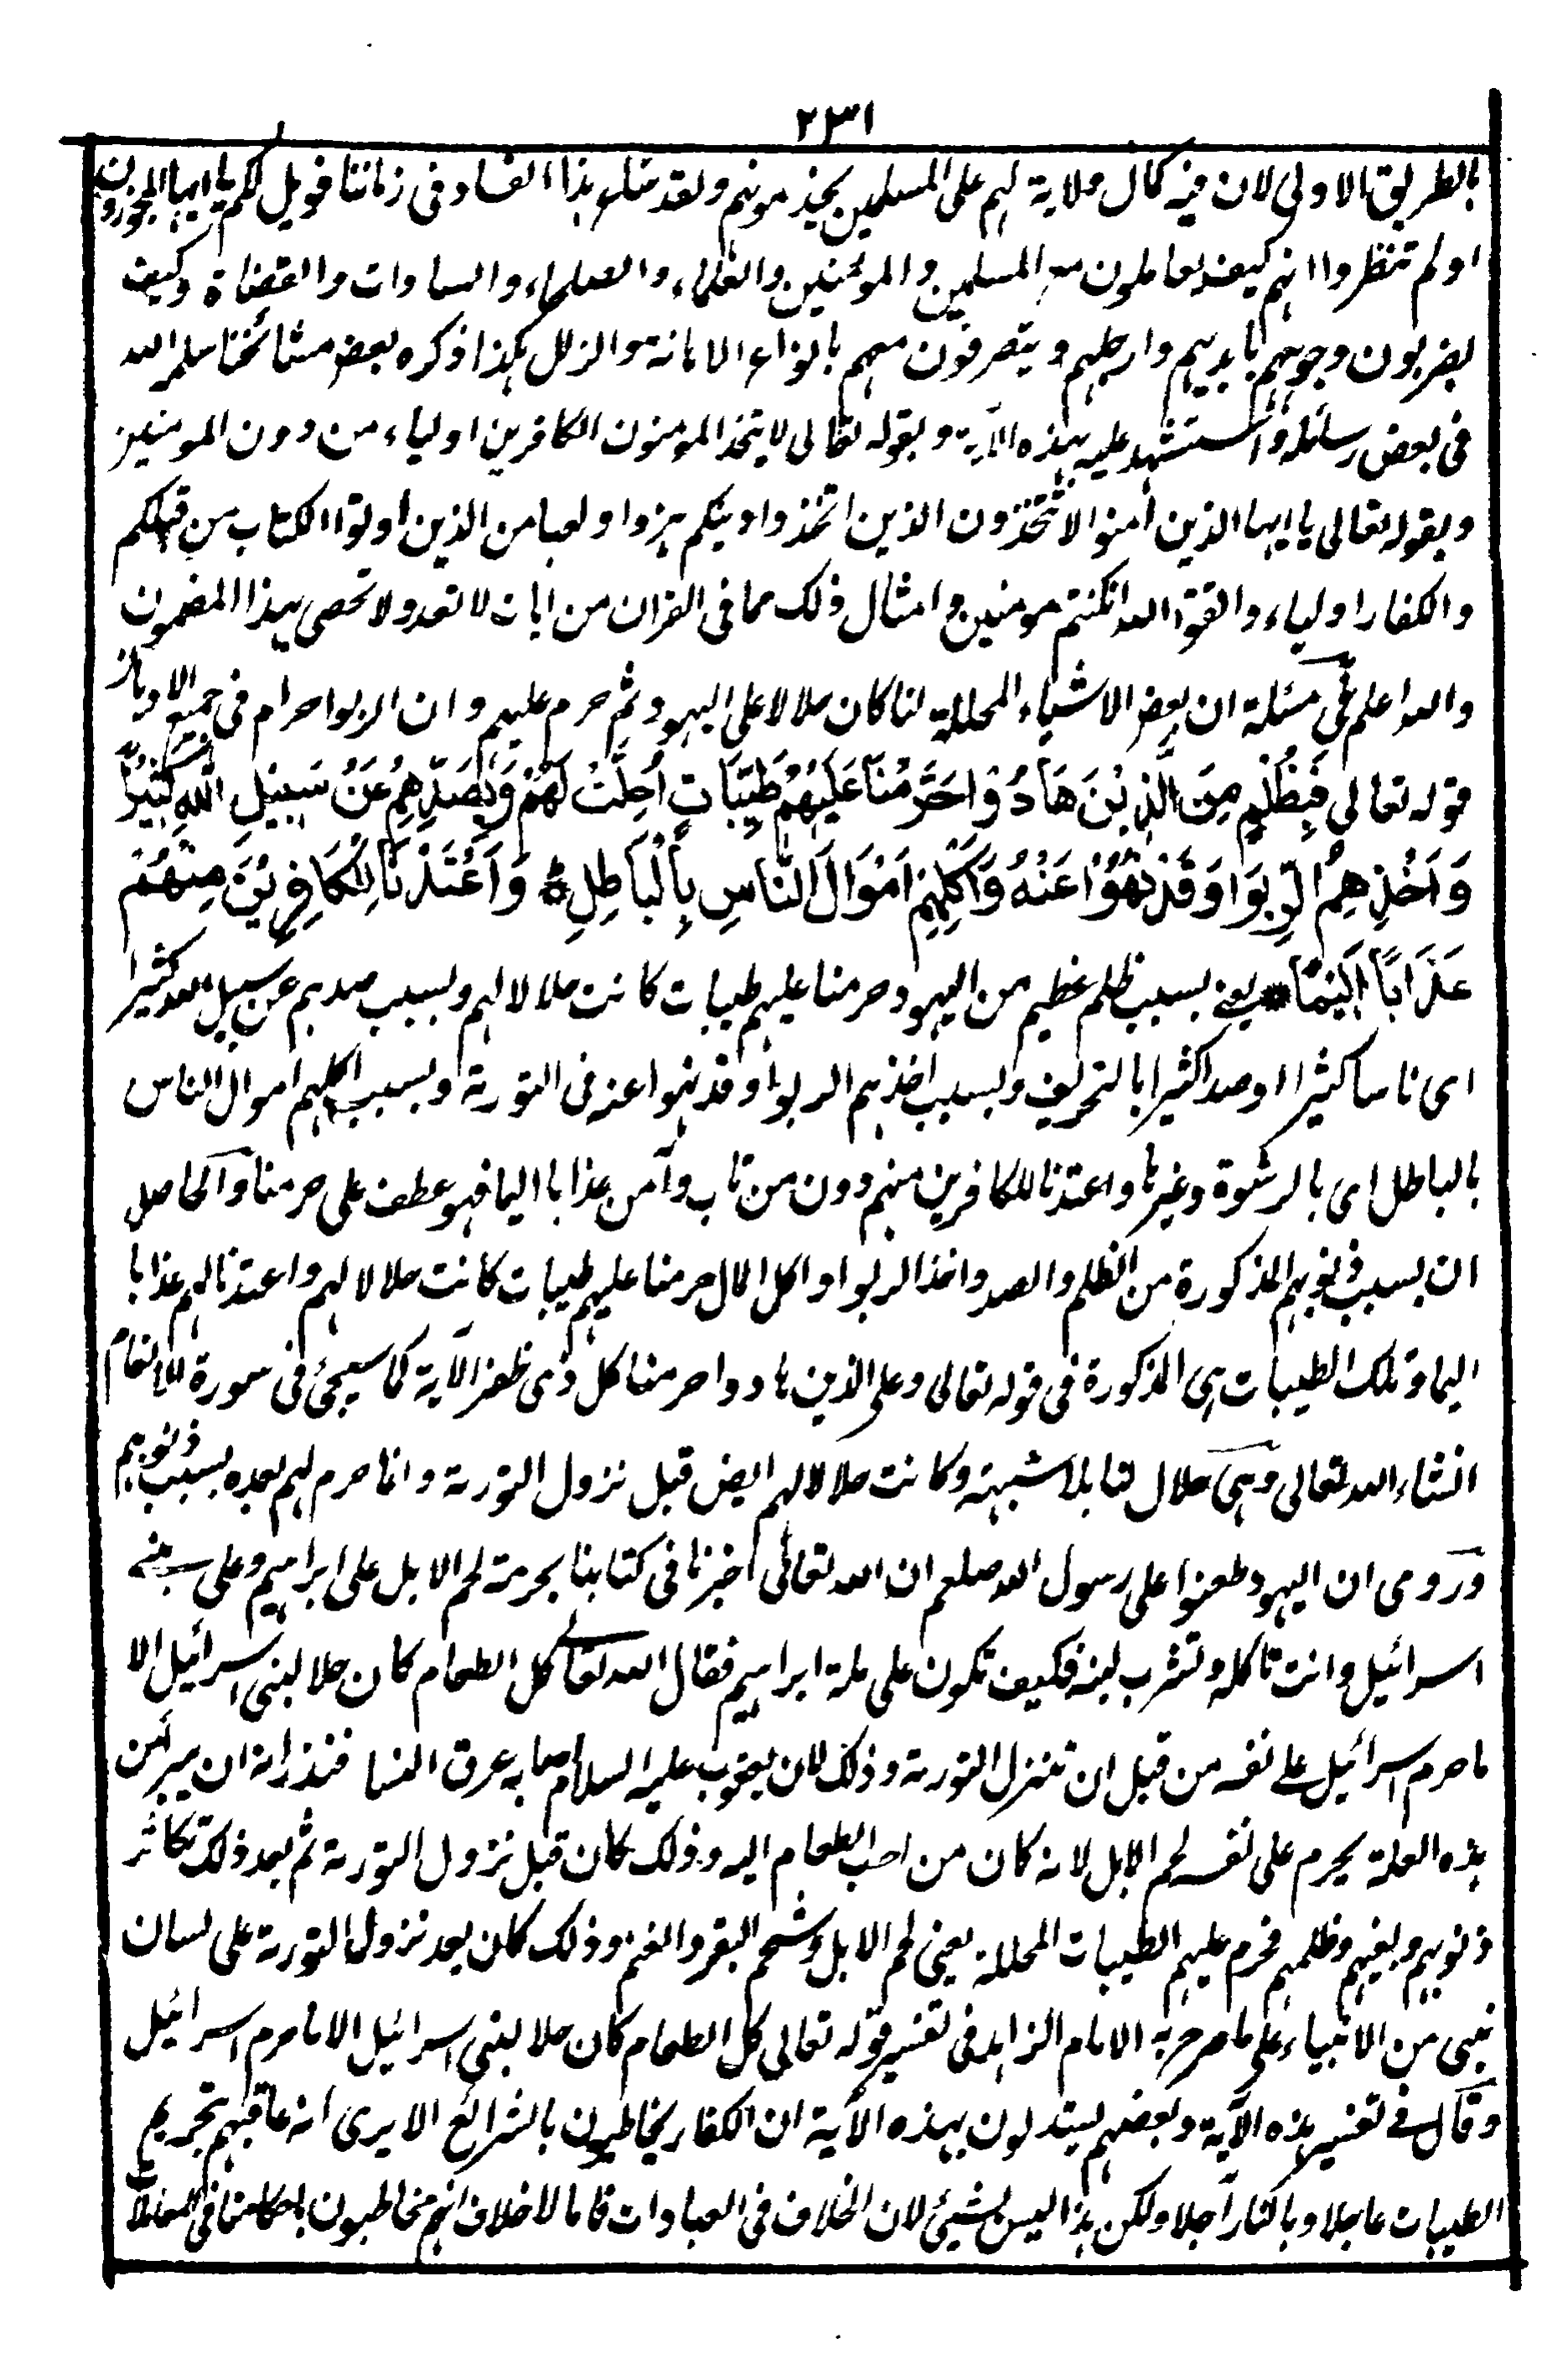 ٢٣١
بالطريق الاولى لان فيه كمال ولاية لهم على المسلمين بحيذمونهم ولقد شاع هذا الفساد فى زماننا فويل لكم يا ايها المجوزون
اولم تنظروا انهم كيف يعاملون مع المسلمين والمؤمنين والعلماء والصلحاء والسادات والقضاة وكيف
يضربون وجوههم بايديهم وارجلهم ويتصرفون معهم بانواع الاهانة والزلل هكذا ذكره بعض مشائخنا سلمه الله
فى بعض رسائله واستشهد عليه بهذه الآية وبقوله تعالى لا يتخذ المومنون الكافرين اولياء من دون المومنين
وبقوله تعالى يا ايها الذين امنوا لا تتخذون الذين اتخذوا دينكم هزوا ولعبا من الذين اوتوا الكتاب من قبلكم
والكفار اولياء واتقوا الله انكنتم مومنين وامثال ذلك مما فى القران من ايات لا تعد ولا تحصى بهذا المضمون
والله اعلم فى مسئلة ان بعض الاشياء المحللة لنا كان حلالا على اليهود ثم حرم عليهم وان الربوا حرام فى جميع الاديان
قوله تعالى فَبِظُلْمٍ مِنَ الَّذِيْنَ هَادُوْا حَرَّمْنَا عَلَيْهِمْ طَيِّبَاتٍ اُحِلَّتْ لَهُمْ وَبِصَدِّهِمْ عَنْ سَبِيْلِ اللّٰهِ كَثِيْرًا
وَاَخْذِهِمُ الرِّبَوا وَقَدْ نُهُوْا عَنْهُ وَاَكْلِهِمْ اَمْوَالَ النَّاسِ بِالْبَاطِلِ وَاَعْتَدْنَا لِلْكَافِرِيْنَ مِنْهُمْ
عَذَابًا اَلِيْمًا يعنے بسبب ظلم عظيم من اليهود حرمنا عليهم طيبات كانت حلالا لهم وبسبب صدهم عن سبيل الله كثيرا
اى ناسا كثيرا او صدا كثيرا بالتحريف وبسبب اخذهم الربوا وقد نهوا عنه فى التورية وبسبب اكلهم اموال الناس
بالباطل اى بالرشوة وغيرها واعتدنا للكافرين منهم دون من تاب وآمن عذابا اليما فهو عطف على حرمنا والحاصل
ان بسبب ذنوبهم المذكورة من الظلم والصد واخذ الربوا واكل المال حرمنا عليهم طيبات كانت حلالا لهم واعتدنا لهم عذابا
اليما وتلك الطيبات هى المذكورة فى قوله تعالى وعلى الذين هادوا حرمنا كل ذى ظفر الآية كما سيجئ فى سورة الانعام
انشاء الله تعالى وهى حلال لنا بلا شبهة وكانت حلالا لهم ايض قبل نزول التورية وانما حرم لهم بعده بسبب ذنوبهم
وروى ان اليهود طعنوا على رسول الله صلعم ان الله تعالى اخبرنا فى كتابنا بحرمة لحم الابل على ابراهيم وعلى بنے
اسرائيل وانت تاكله وتشرب لبنه فكيف تكون على ملة ابراهيم فقال الله تعالى كل الطعام كان حلا لبنى اسرائيل الا
ما حرم اسرائيل علے نفسه من قبل ان تنزل التورية وذلك لان يعقوب عليه السلام اصابه عرق النسا فنذر انه ان يبرأ من
هذه العلة يحرم على نفسه لحم الابل لانه كان من احب الطعام اليه وذلك كان قبل نزول التورية ثم بعد ذلك تكاثر
ذنوبهم وبغيهم وظلمهم فحرم عليهم الطيبات المحللة يعنى لحم الابل وشحم البقر والغنم وذلك كان بعد نزول التورية على لسان
نبى من الانبياء على ما صرح به الامام الزاهد فى تفسير قوله تعالى كل الطعام كان حلا لبنى اسرائيل الا ما حرم اسرائيل
وقال فے تفسير هذه الآية وبعضهم يستدلون بهذه الآية ان الكفار يخاطبون بالشرائع الا يرى انه عاقبهم بتحريم
الطيبات عاجلا وبالنار آجلا ولكن هذا ليس بشيئ لان الخلاف فى العبادات فاما لا خلاف انهم مخاطبون باحكامنا فى المعاملات